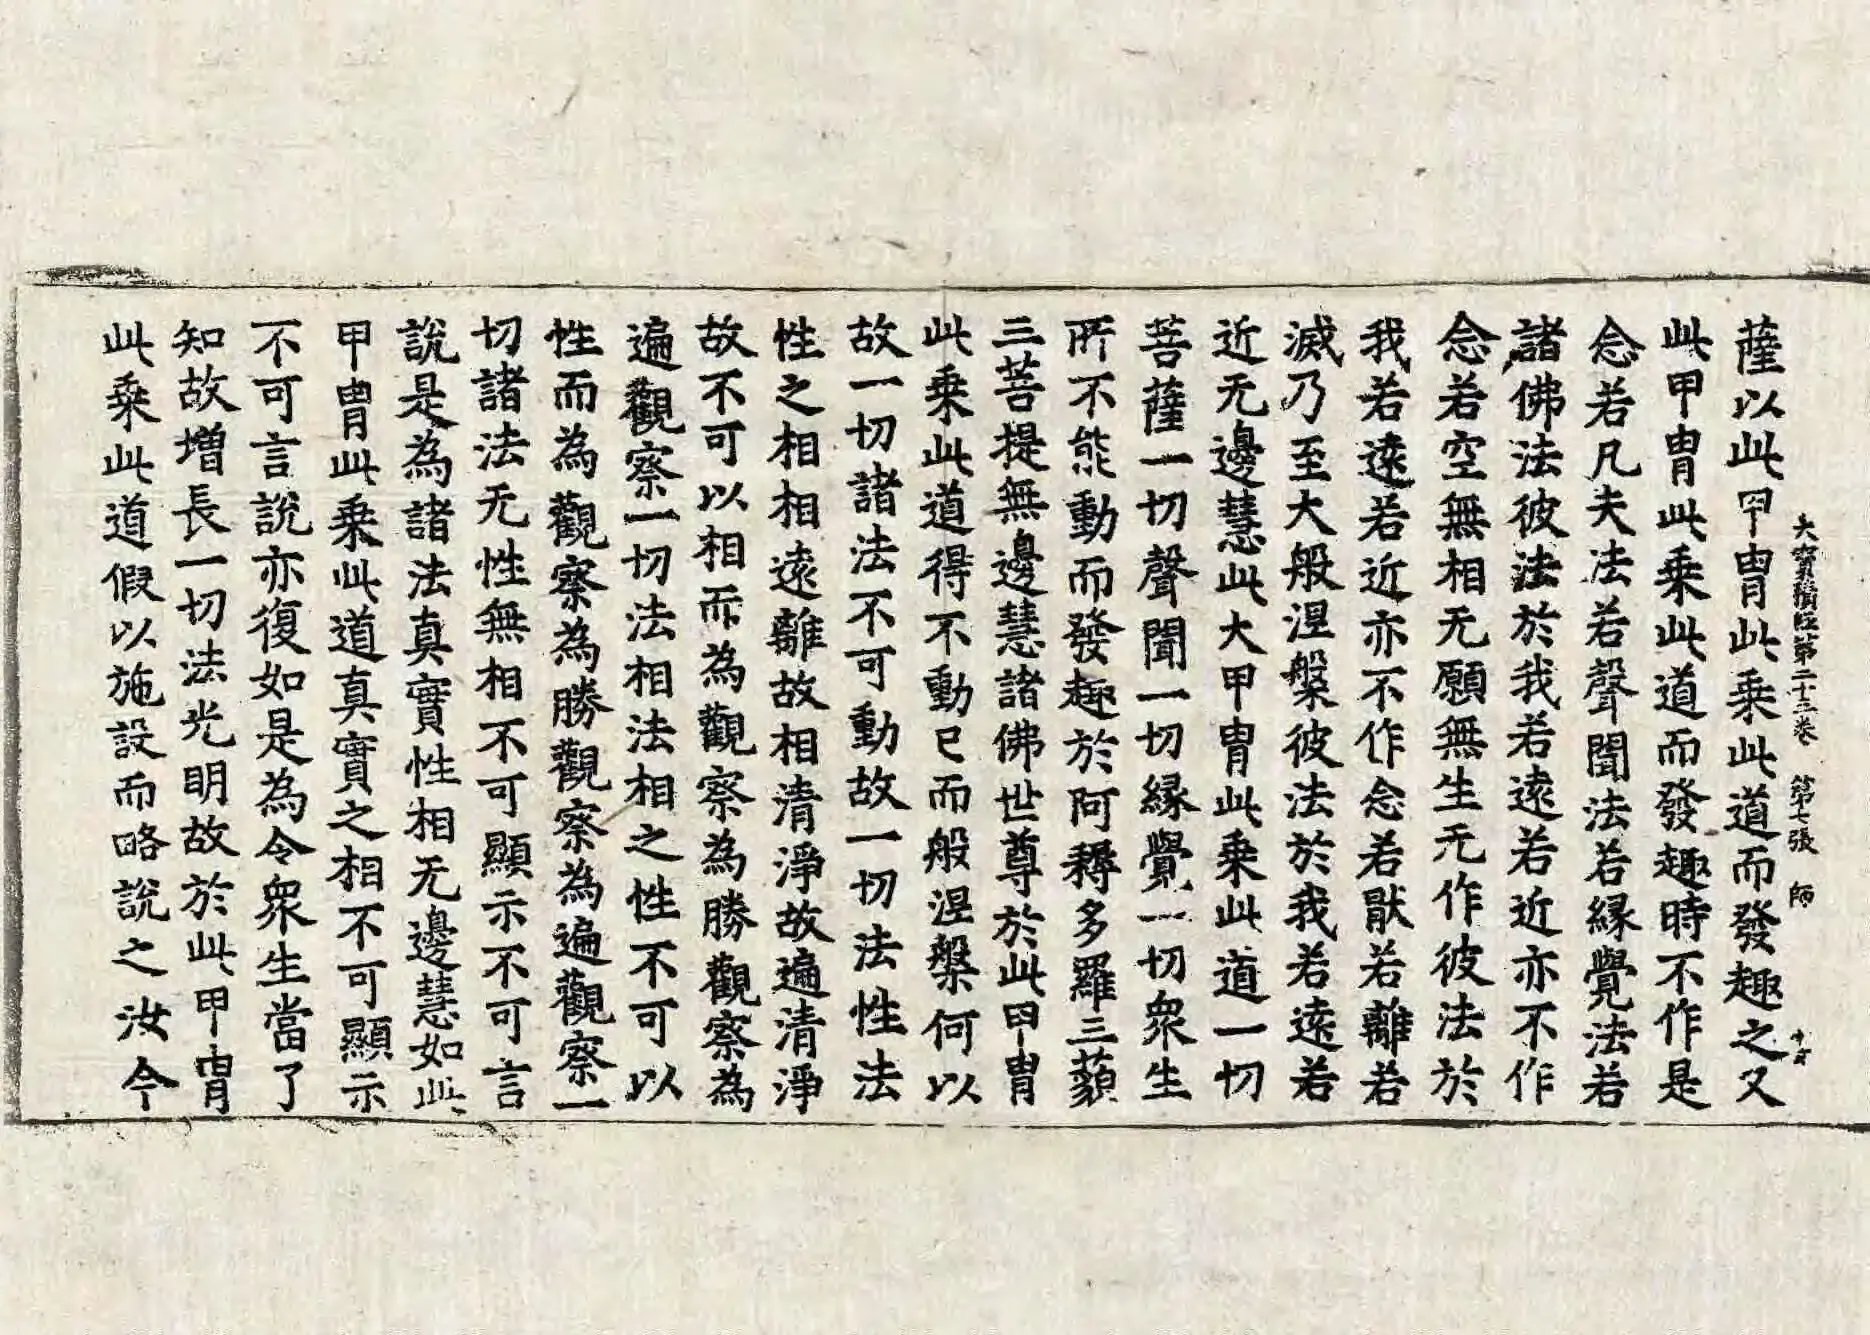 大寶積經第二十三卷　第七張　師
薩以此曱胄此乗此道而發趣之又
此甲胄此乗此道而發趣時不作是
念若凡夫法若聲聞法若縁覺法若
諸佛法彼法於我若遠若近亦不作
念若空無相无願無生无作彼法於
我若遠若近亦不作念若猒若離若
滅乃至大般涅槃彼法於我若遠若
近无邊慧此大甲胄此乗此道一切
菩薩一切聲聞一切縁覺一切衆生
所不能動而發趣於阿耨多羅三藐
三菩提無邊慧諸佛世尊於此曱胄
此乗此道得不動已而般涅槃何以
故一切諸法不可動故一切法性法
性之相相遠離故相清淨故遍清淨
故不可以相而為觀察為勝觀察為
遍觀察一切法相法相之性不可以
性而為觀察為勝觀察為遍觀察一
切諸法无性無相不可顯示不可言
說是為諸法真實性相无邊慧如此
甲胄此乗此道真實之相不可顯示
不可言說亦復如是為令衆生當了
知故增長一切法光明故於此甲胄
此乗此道假以施設而略說之汝今